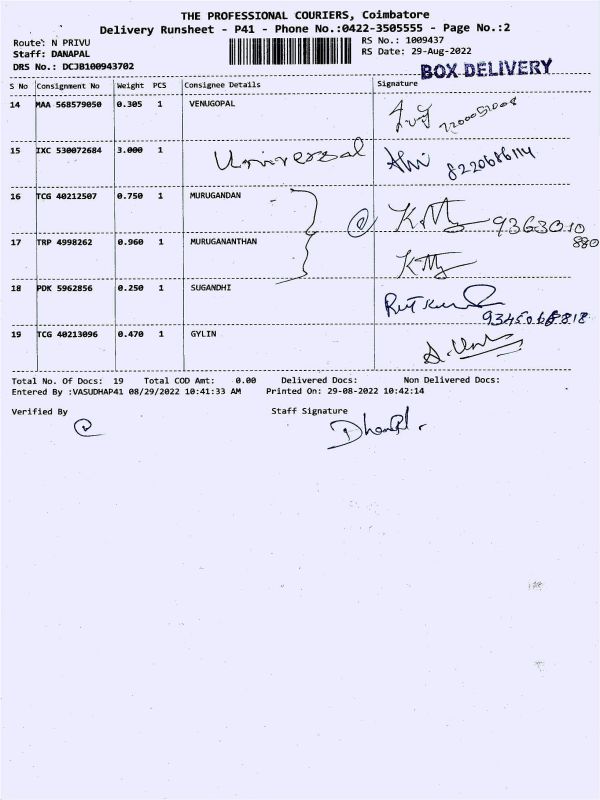 THE PROFESSIONAL COURIERS, Coimbatore
Delivery Runsheet - P41 - Phone No.:0422-3505555 - Page No.:2
Route: N PRIVU
RS No.: 1009437
Staff: DANAPAL
RS Date: 29-Aug-2022
DRS No.: DCJB100943702
BOX DELIVERY
S No Consignment No Weight PCS Consignee Details Signature
14 MAA 568579050 0.305 1 VENUGOPAL
15 IXC 530072684 3.000 1 Universal
8220686114
16 TCG 40212507 0.750 1 MURUGANDAN
9363010
880
17 TRP 4998262 0.960 1 MURUGANANTHAN
18 PDK 5962856 0.250 1 SUGANDHI
19 TCG 40213096 0.470 1 GYLIN
Total No. Of Docs: 19 Total COD Amt: 0.00 Delivered Docs: Non Delivered Docs:
Entered By :VASUDHAP41 08/29/2022 10:41:33 AM Printed On: 29-08-2022 10:42:14
Verified By Staff Signature